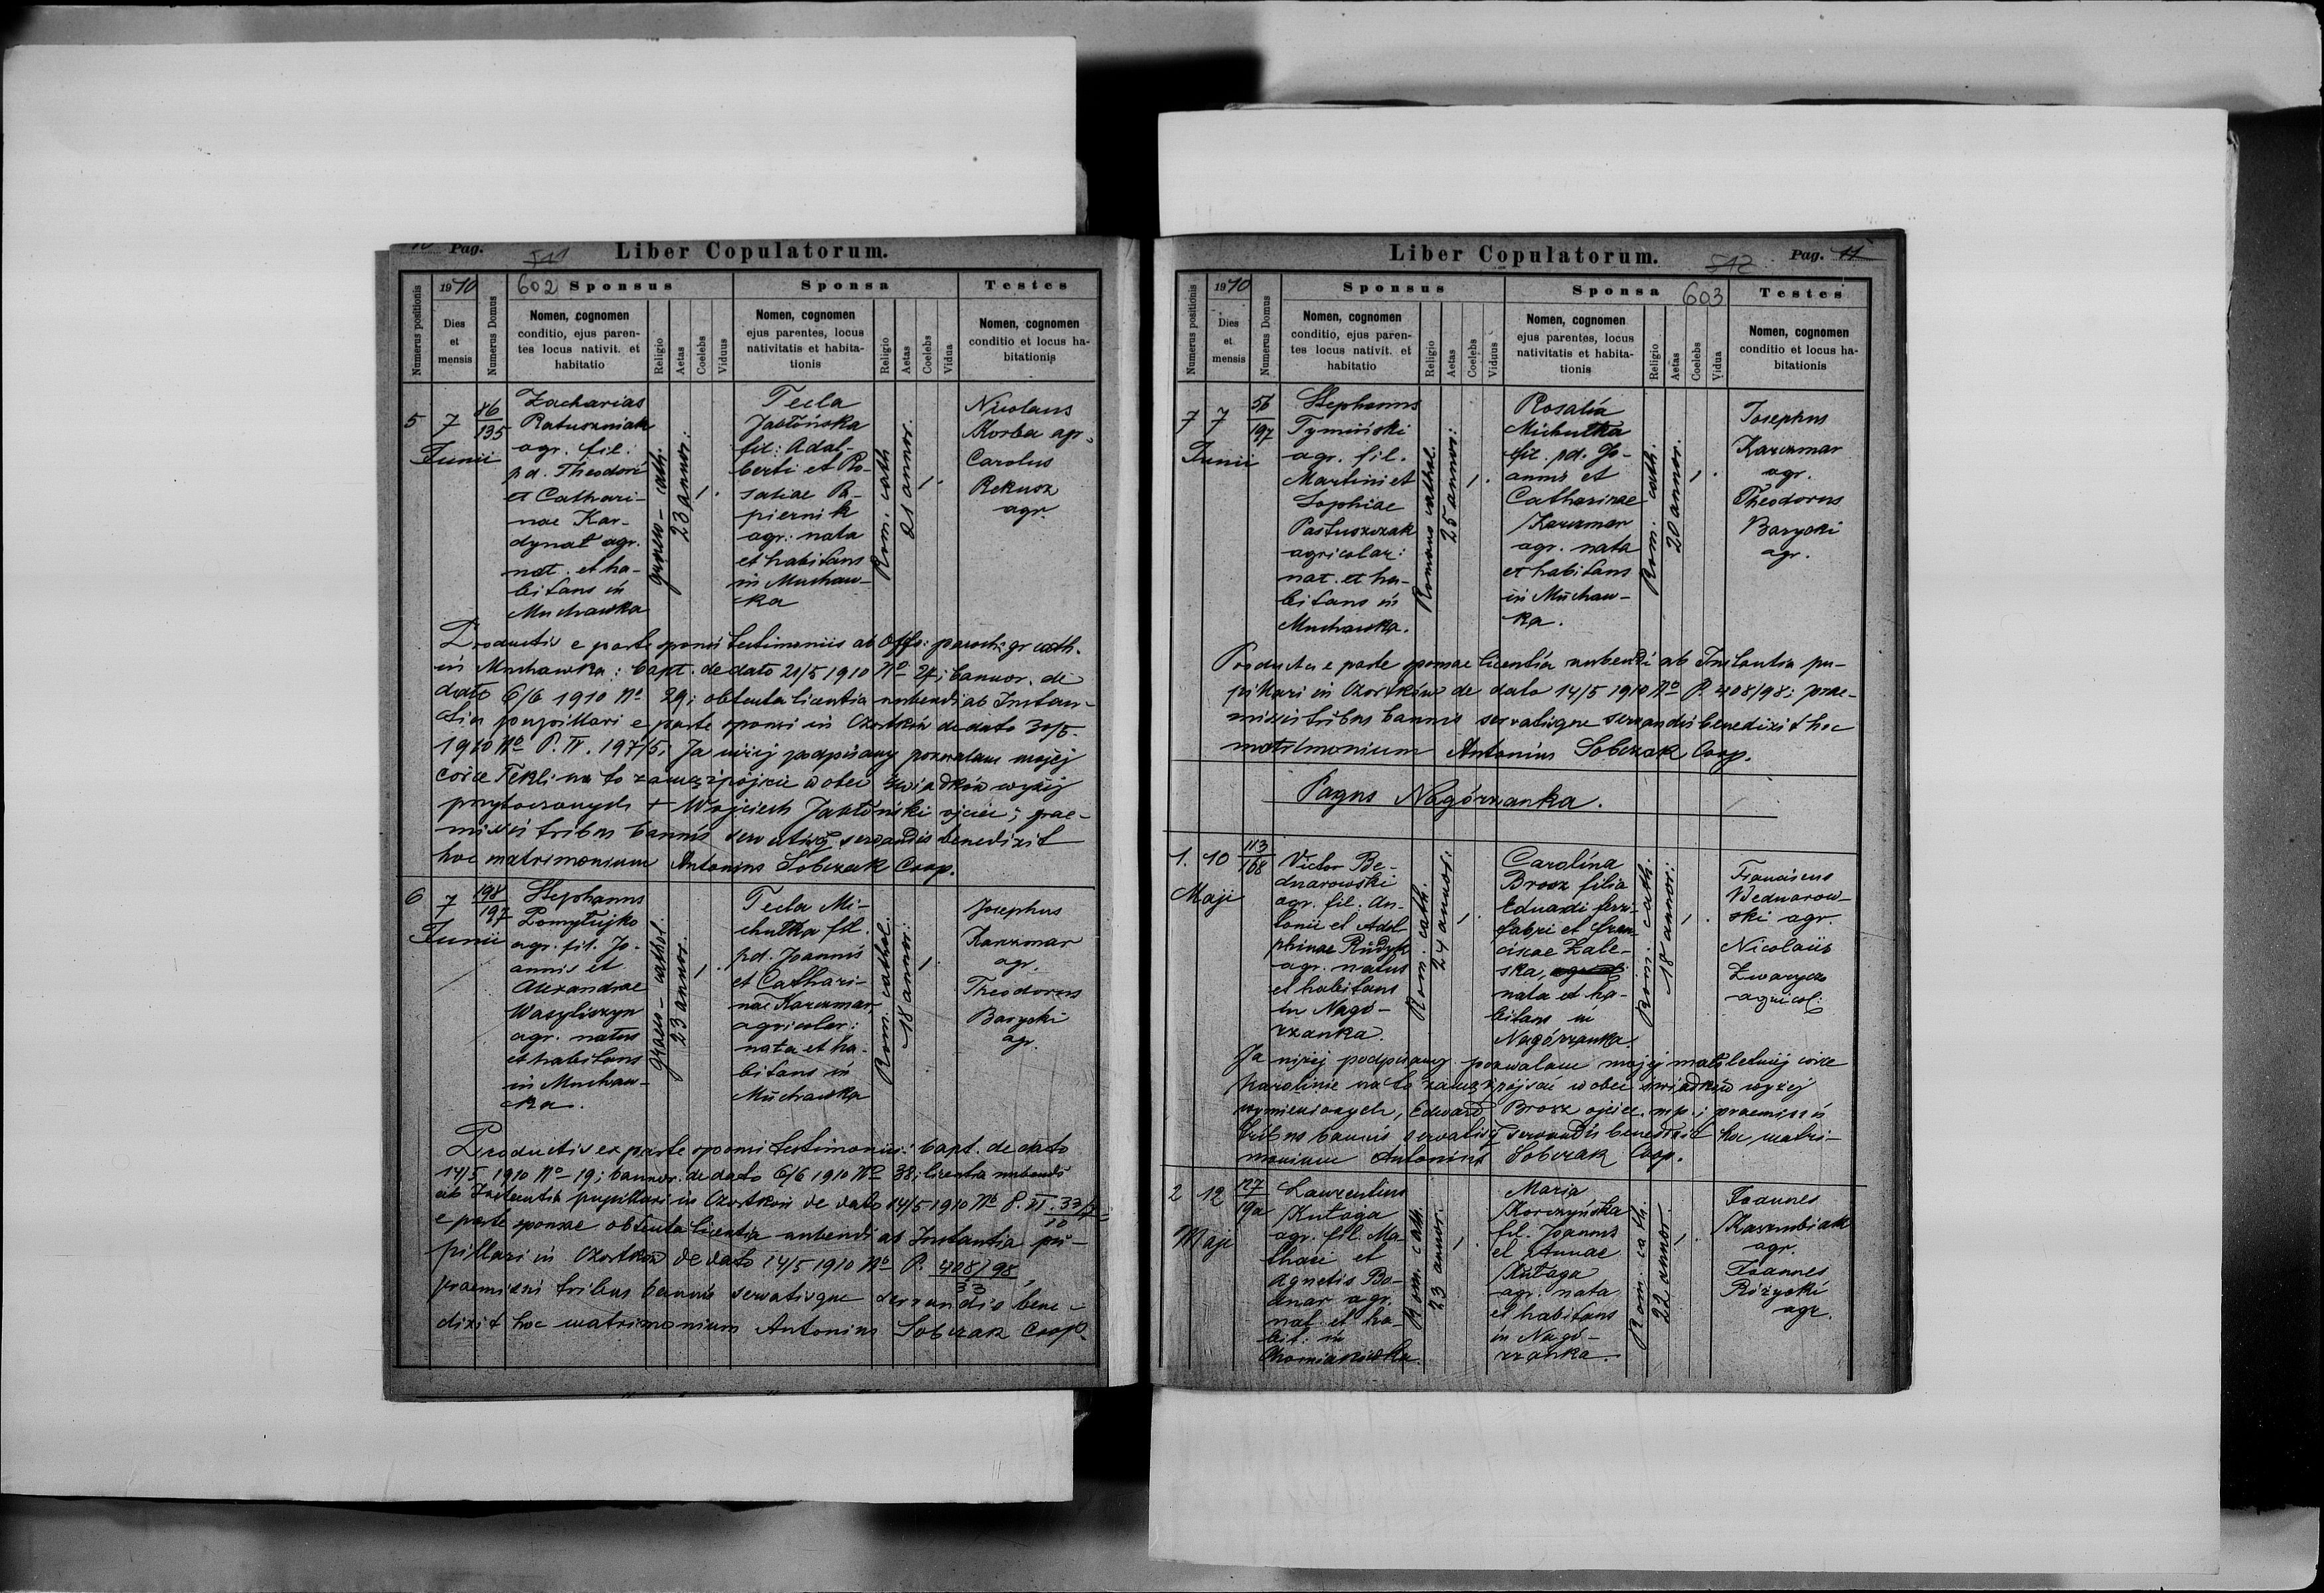 10 Pag.
511
Liber Copulatorum.
Numerus positionis
1910
Dies
et
mensis
Numerus Domus
602 Sponsus
Nomen, cognomen
conditio, ejus paren-
tes locus nativit. et
habitatio
Religio
Aetas
Coelebs
Viduus
Sponsa
Nomen, cognomen
ejus parentes, locus
nativitatis et habita-
tionis
Religio
Aetas
Coelebs
Vidua
Testes
Nomen, cognomen
conditio et locus ha-
bitationis
5
7
Junii
86
135
Zacharias
Ratuszniak
agr. fil.
pd. Theodori
et Cathari-
nae Kar-
dynał agr.
nat. et ha-
bitans in
Muchawka
graeco-cath.
23 annor:
1.
Tecla
Jabłońska
fil: Adal-
berti et Ro-
saliae Pa-
piernik
agr: nata
et habitans
in Muchaw-
ka
Rom. cath
21 annor.
1.
Nicolaus
Korba agr.
Carolus
Rekusz
agr.
Productis e parte sponsi testimoniis ab Offo: paroch: gr cath.
in Muchawka: bapt. de dato 21/5 1910 No 27; bannor. de
dato 6/6 1910 No 29; obtenta licentia nubendi ab Instan-
tia pupillari e parte sponsi in Czortków de dato 30/5
1910 No P. IV. 197/5; Ja niżej podpisany pozwalam mojej
córce Tekli na to zamążpójście wobec świadków wyżej
przytoczonych + Wojciech Jabłoński ojciec; prae-
missis tribus bannis servatisq servandis benedixit
hoc matrimonium Antonius Sobczak Coop.
6
7
Junii
198
197
Stephanus
Pomyłujko
agr. fil. Jo-
annis et
Alexandrae
Wasyliszyn
agr. natus
et habitans
in Muchaw-
ka.
graeco-cathol.
23 annor.
1.
Tecla Mi-
chutka fil.
pd. Joannis
et Cathari-
nae Karczmar,
agricolar:
nata et ha-
bitans in
Muchawka
Rom. cathol.
18 annor:
1.
Josephus
Karczmar
agr.
Theodorus
Barycki
agr.
Productis ex parte sponsi testimoniis: bapt. de dato
14/5 1910 No 19; bannor. de dato 6/6 1910 No 38; licentia nubendi
ab Instantia pupillari in Czortków de dato 14/5 1910 No P. VI.
e parte sponsae obtenta licentia nubendi ab Instantia pu-
pillari in Czortków de dato 14/5 1910 No P. 408/98,
33
praemissis tribus bannis servatisque servandis bene-
dixit hoc matrimonium Antonius Sobczak Coop.
Liber Copulatorum.
512
Pag. 11
Numerus positionis
1910
Dies
et
mensis
Numerus Domus
Sponsus
Nomen, cognomen
conditio, ejus paren-
tes locus nativit. et
habitatio
Religio
Aetas
Coelebs
Viduus
Sponsa 603
Nomen, cognomen
ejus parentes, locus
nativitatis et habita-
tionis
Religio
Aetas
Coelebs
Vidua
Testes
Nomen, cognomen
conditio et locus ha-
bitationis
7
7
Junii
56
197
Stephanus
Tymiński
agr. fil.
Martini et
Sophiae
Pastuszczak
agricolar:
nat. et ha-
bitans in
Muchawka.
Romano cathol.
25 annor:
1.
Rosalia
Michutka
fil. pd. Jo-
annis et
Catharinae
Karczmar
agr. nata
et habitans
in Muchaw-
ka.
Rom. cath.
20 annor.
1.
Josephus
Karczmar
agr.
Theodorus
Barycki
agr.
Producta e parte sponsae licentia nubendi ab Instantia pu-
pillari in Czortków de dato 14/5 1910 No P. 408/98; prae-
missis tribus bannis servatisque servandis benedixit hoc
matrimonium Antonius Sobczak Coop.
Pagus Nagórzanka.
1.
10
Maji
113
168
Victor Be-
dnarowski
agr. fil. An-
tonii et Adol-
phinae Rudyk
agr. natus
et habitans
in Nagó-
rzanka.
Rom. cath.
24 annor:
1.
Carolina
Brosz filia
Eduardi ferri-
fabri et Fran-
ciscae Zale-
ska,
nata et ha-
bitans in
Nagórzanka.
Rom. cath.
18 annor:
1.
Franciscus
Bednarow-
ski agr.
Nicolaus
Zwarycz
agricol:
Ja niżej podpisany pozwalam mojej małoletniej córce
Karolinie na to zamążpójście wobec świadków wyżej
wymienionych, Edward Brosz ojciec. mp.; praemissis
tribus bannis servatisq servandis benedixit hoc matri-
monium Antonius Sobczak Coop.
2
12
Maji
127
Laurentius
Kutaga
agr. fil. Ma-
thaei et
Agnetis Bo-
dnar agr.
nat. et ha-
bit: in
Chomiakówka.
Rom. cath.
23 annor.
1.
Maria
Korczyńska
fil. Joannis
et Annae
Kutaga
agr. nata
et habitans
in Nagó-
rzanka.
Rom. cath.
22 annor.
1.
Joannes
Kaszubiak
agr.
Joannes
Różycki
agr.